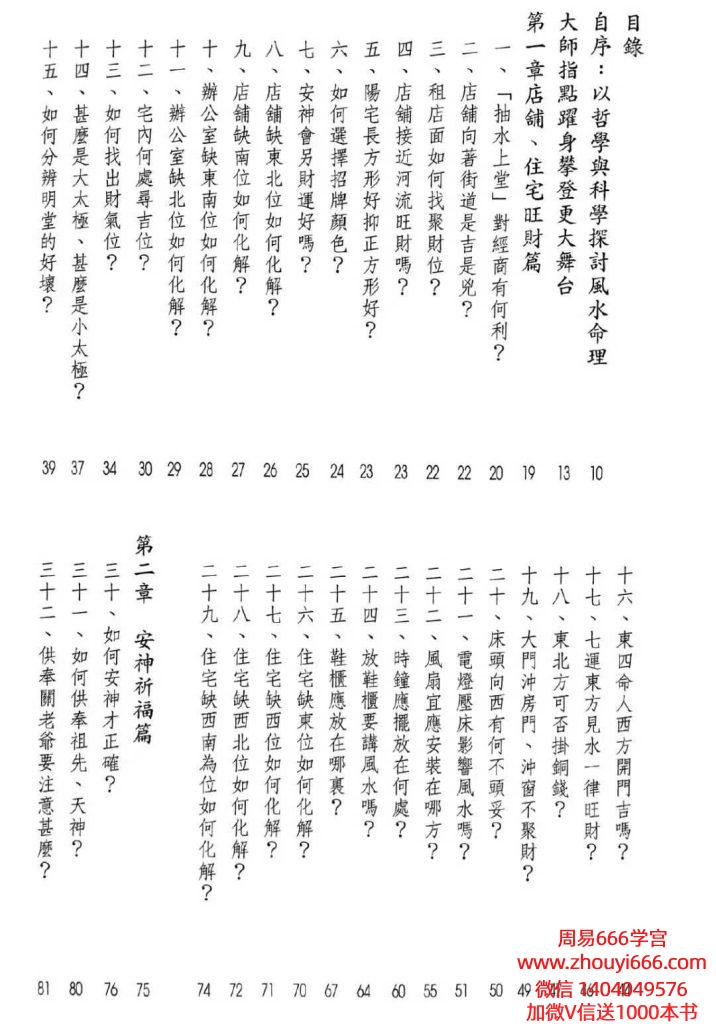 目錄
自序：以哲學與科學探討風水命理 10
大師指點躍身攀登更大舞台 13
第一章店舖、住宅旺財篇 19
一、「抽水上堂」對經商有何利？ 20
二、店舖向著街道是吉是兇？ 22
三、租店面如何找聚財位？ 22
四、店舖接近河流旺財嗎？ 23
五、陽宅長方形好抑正方形好？ 23
六、如何選擇招牌顏色？ 24
七、安神會另財運好嗎？ 25
八、店舖缺東北位如何化解？ 26
九、店舖缺南位如何化解？ 27
十、辦公室缺東南位如何化解？ 28
十一、辦公室缺北位如何化解？ 29
十二、宅內何處尋吉位？ 30
十三、如何找出財氣位？ 34
十四、甚麼是大太極、甚麼是小太極？ 37
十五、如何分辨明堂的好壞？ 39
十六、東四命人西方開門吉嗎？
十七、七運東方見水一律旺財？
十八、東北方可否掛銅錢？
十九、大門沖房門、沖窗不聚財？ 49
二十、床頭向西有何不頭妥？ 50
二十一、電燈壓床影響風水嗎？ 51
二十二、風扇宜應安裝在哪方？ 55
二十三、時鐘應擺放在何處？ 60
二十四、放鞋櫃要講風水嗎？ 64
二十五、鞋櫃應放在哪裏？ 67
二十六、住宅缺東位如何化解？ 70
二十七、住宅缺西位如何化解？ 71
二十八、住宅缺西北位如何化解？ 72
二十九、住宅缺西南為位如何化解？ 74
第二章 安神祈福篇 75
三十、如何安神才正確？ 76
三十一、如何供奉祖先、天神？ 80
三十二、供奉關老爺要注意甚麼？ 81
周易666学宫
www.zhouyi666.com
微信 1404049576
加微V信送1000本书